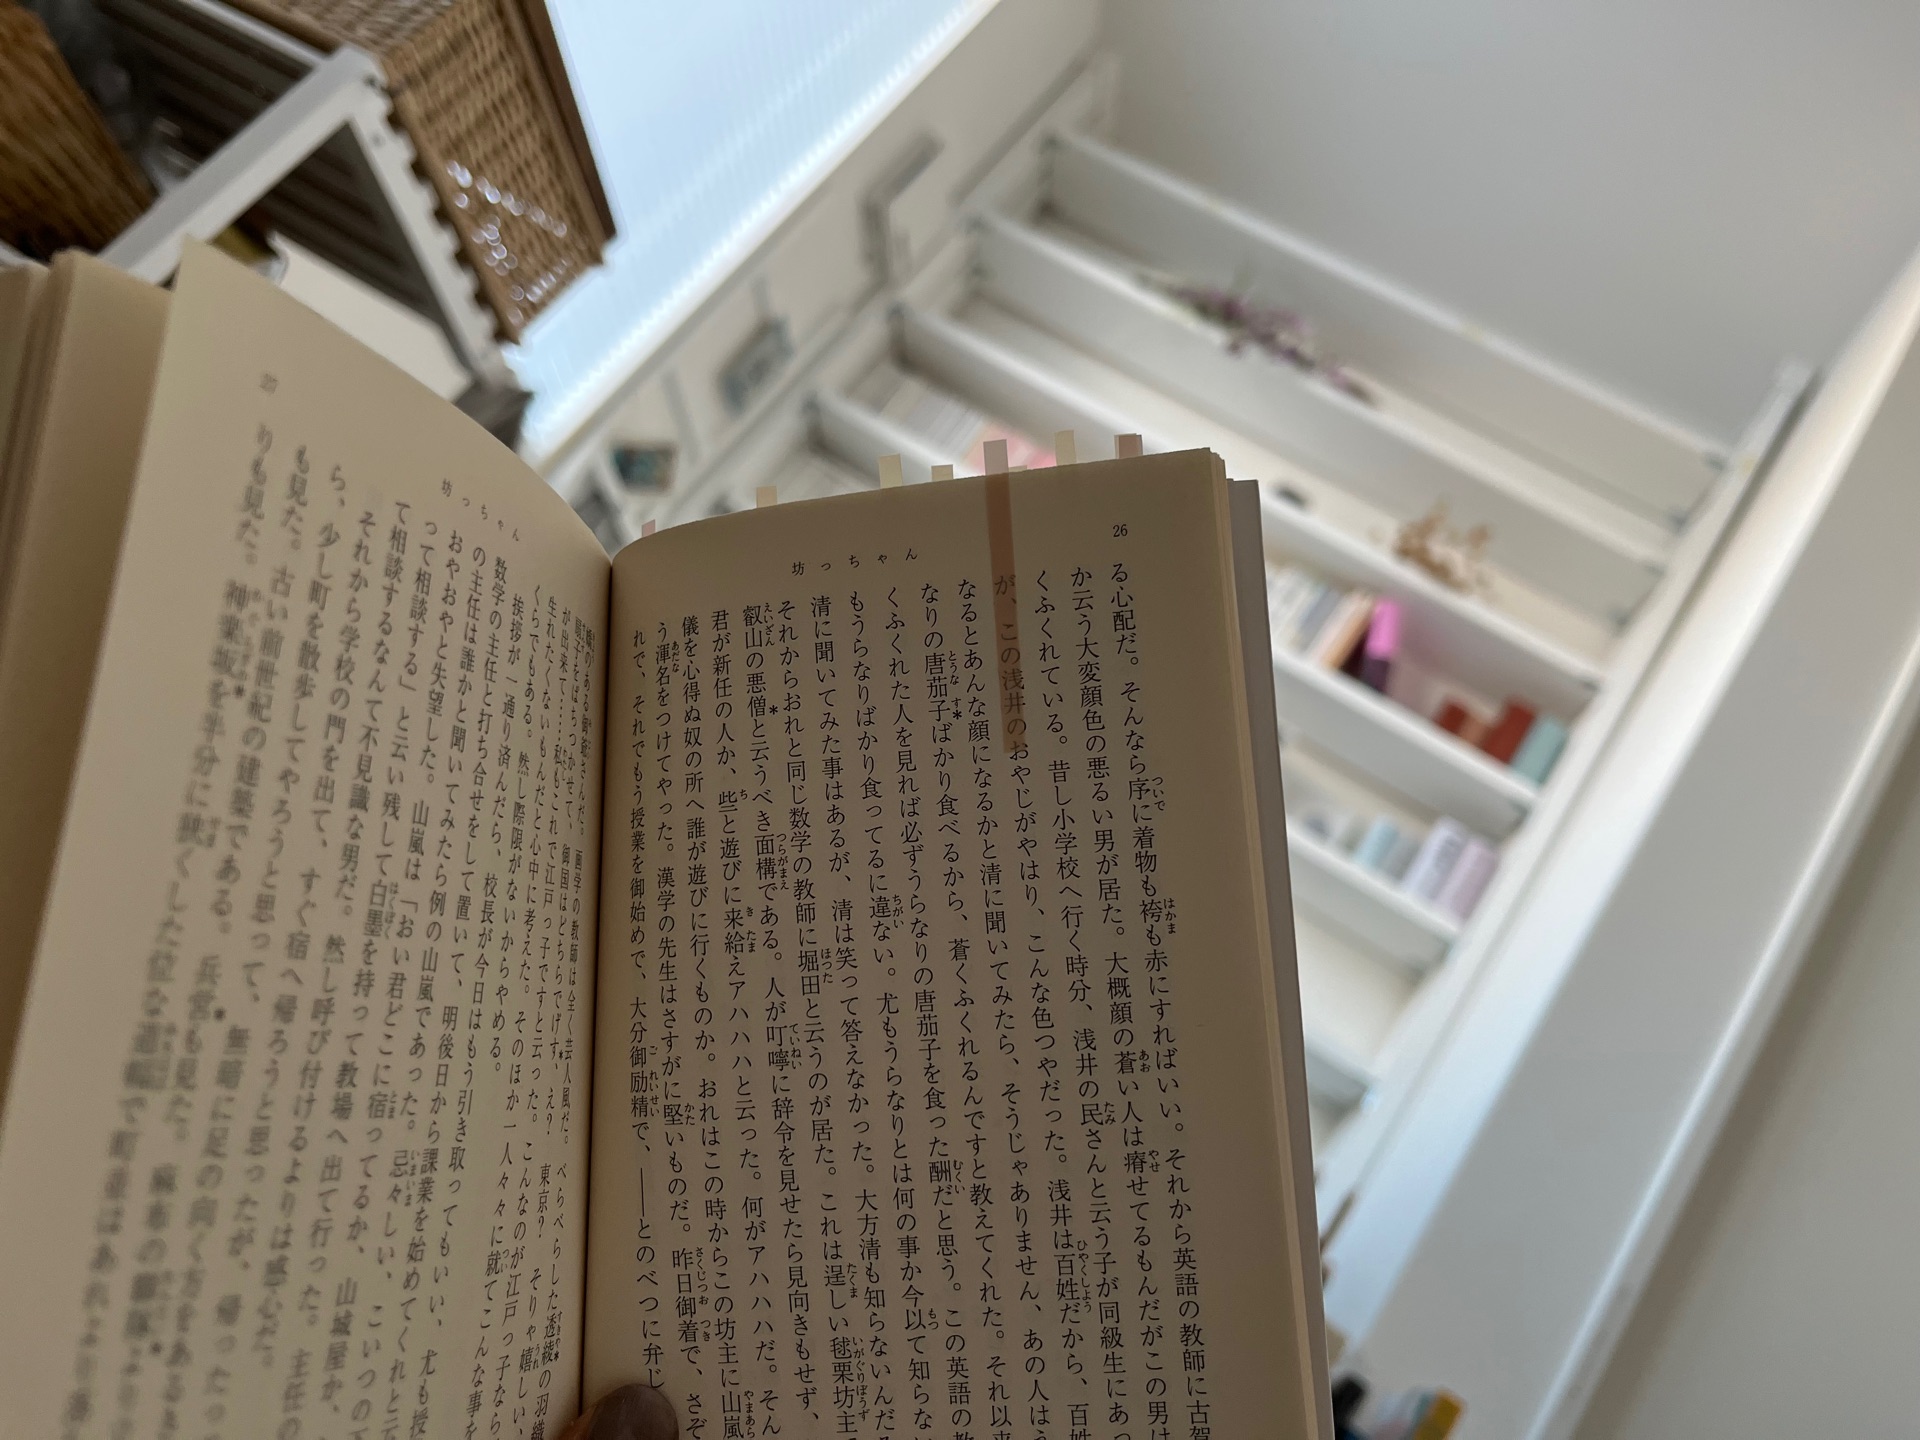 26
坊っちゃん
る心配だ。そんなら序に着物も袴も赤にすればいい。それから英語の教師に古賀
か云う大変顔色の悪るい男が居た。大概顔の蒼い人は瘠せてるもんだがこの男は
くふくれている。昔し小学校へ行く時分、浅井の民さんと云う子が同級生にあっ
が、この浅井のおやじがやはり、こんな色つやだった。浅井は百姓だから、百姓
なるとあんな顔になるかと清に聞いてみたら、そうじゃありません、あの人はう
なりの唐茄子ばかり食べるから、蒼くふくれるんですと教えてくれた。それ以来
くふくれた人を見れば必ずうらなりの唐茄子を食った酬だと思う。この英語の教
もうらなりばかり食ってるに違ない。尤もうらなりとは何の事か今以て知らない
清に聞いてみた事はあるが、清は笑って答えなかった。大方清も知らないんだろ
それからおれと同じ数学の教師に堀田と云うのが居た。これは逞しい毬栗坊主
叡山の悪僧と云うべき面構である。人が叮嚀に辞令を見せたら見向きもせず、
君が新任の人か、些と遊びに来給えアハハハと云った。何がアハハハだ。そん
儀を心得ぬ奴の所へ誰が遊びに行くものか。おれはこの時からこの坊主に山嵐
う渾名をつけてやった。漢学の先生はさすがに堅いものだ。昨日御着で、さぞ
れで、それでもう授業を御始めで、大分御励精で、――とのべつに弁じ
27
坊っちゃん
のある御爺さんだ。画学の教師は全く芸人風だ。べらべらした透綾の羽織
扇子をぱちつかせて、御国はどちらでげす、え？ 東京？ そりゃ嬉しい、
が出来て……私もこれで江戸っ子ですと云った。こんなのが江戸っ子なら
生れたくないもんだと心中に考えた。そのほか一人々々に就てこんな事を
くらでもある。然し際限がないからやめる。
挨拶が一通り済んだら、校長が今日はもう引き取ってもいい、尤も授
数学の主任と打ち合せをして置いて、明後日から課業を始めてくれと云
の主任は誰かと聞いてみたら例の山嵐であった。忌々しい、こいつの下
おやおやと失望した。山嵐は「おい君どこに宿ってるか、山城屋か、
って相談する」と云い残して白墨を持って教場へ出て行った。主任の
て相談するなんて不見識な男だ。然し呼び付けるよりは感心だ。
それから学校の門を出て、すぐ宿へ帰ろうと思ったが、帰ったっ
ら、少し町を散歩してやろうと思って、無暗に足の向く方をあると
も見た。古い前世紀の建築である。兵営も見た。麻布の聯隊より
りも見た。神楽坂を半分に狭くした位な道幅で町並はあれより落